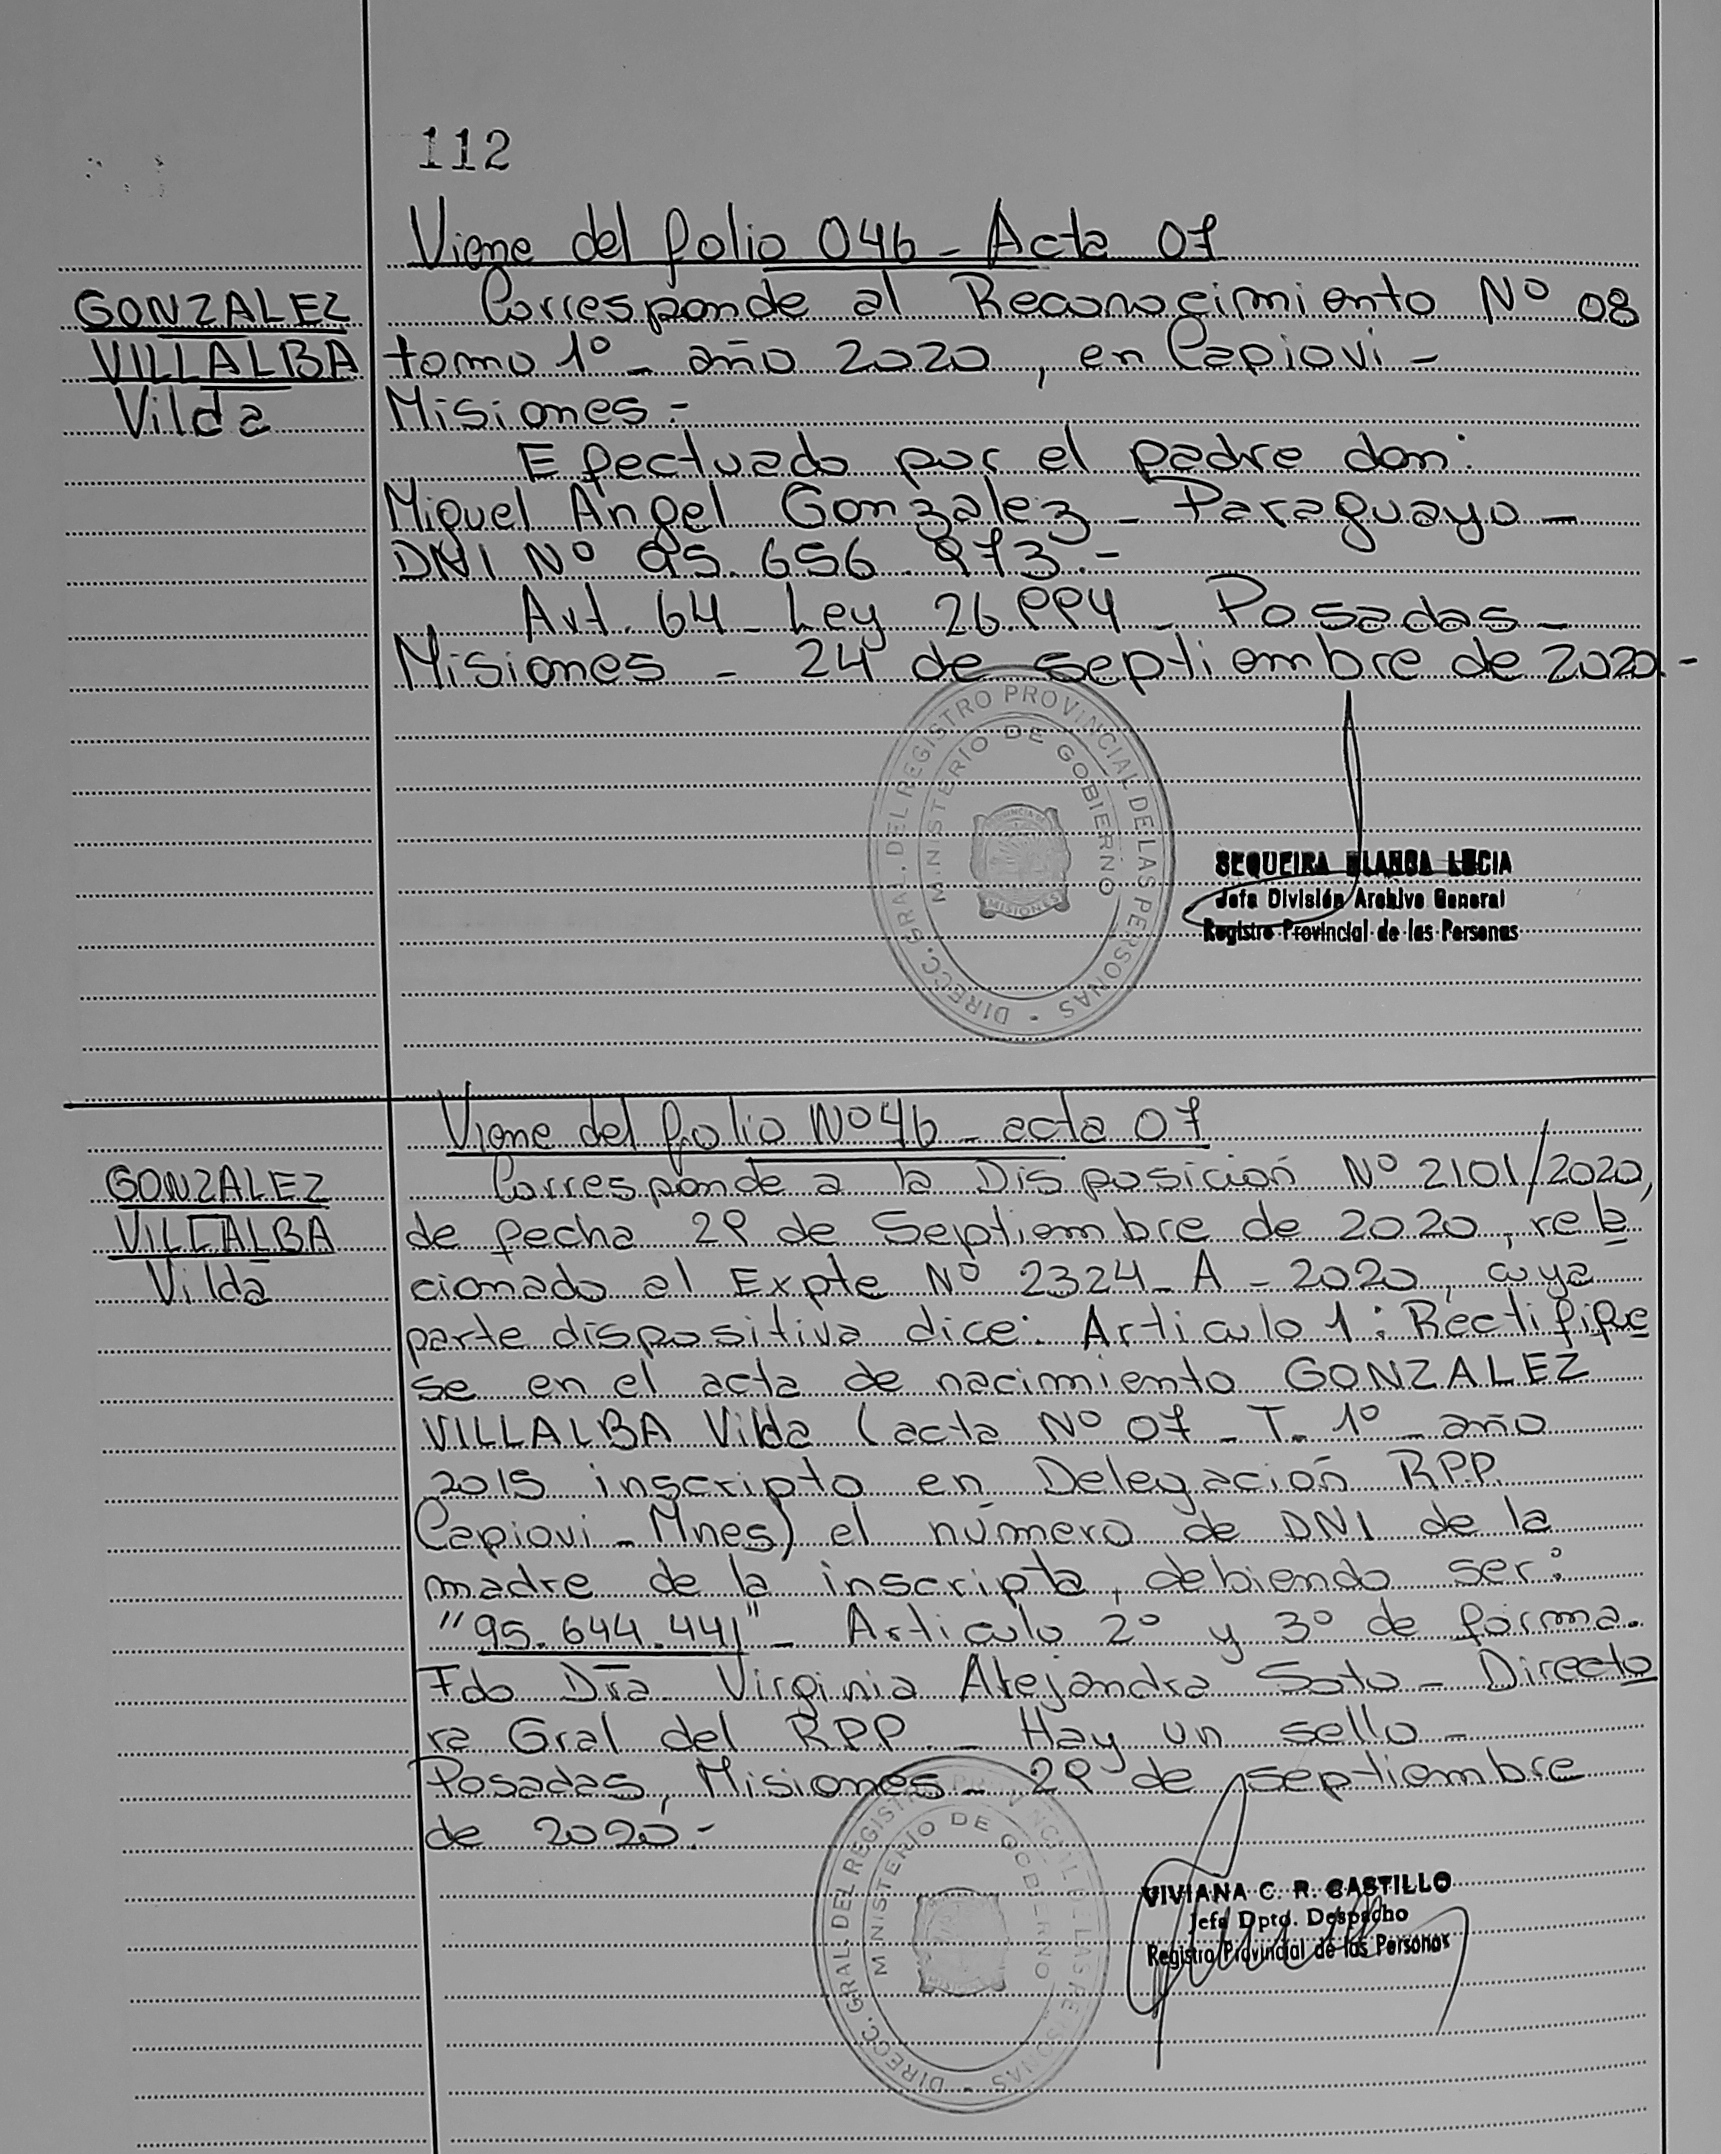 112
Viene del folio 046 - Acta 07
GONZALEZ
VILLALBA
Vilda
Corresponde al Reconocimiento Nº 08
tomo 1º - año 2020, en Capiovi -
Misiones.-
Efectuado por el padre don:
Miguel Angel Gonzalez - Paraguayo -
DNI Nº 95.656.973.-
Art. 64 - Ley 26.994 - Posadas -
Misiones - 24 de septiembre de 2020.-
DIRECC. GRAL. DEL REGISTRO PROVINCIAL DE LAS PERSONAS -
MINISTERIO DE GOBIERNO
MISIONES
SEQUEIRA BLANCA LUCIA
Jefa División Archivo General
Registro Provincial de las Personas
Viene del folio Nº 46 - acta 07
GONZALEZ
VILLALBA
Vilda
Corresponde a la Disposición Nº 2101/2020,
de fecha 29 de Septiembre de 2020, rela
cionado al Expte Nº 2324 - A - 2020, cuya
parte dispositiva dice: Articulo 1: Rectifíque
se en el acta de nacimiento GONZALEZ
VILLALBA Vilda (acta Nº 07 - T. 1º - año
2015 inscripto en Delegación RPP
Capiovi - Mnes) el número de DNI de la
madre de la inscripta, debiendo ser:
"95.644.441" - Articulo 2º y 3º de forma.
Fdo Dra Virginia Alejandra Soto - Directo
ra Gral del RPP - Hay un sello -
Posadas, Misiones - 29 de septiembre
de 2020.-
DIRECC. GRAL. DEL REGISTRO PROVINCIAL DE LAS PERSONAS -
MINISTERIO DE GOBIERNO
MISIONES
VIVIANA C. R. CASTILLO
Jefa Dpto. Despacho
Registro Provincial de las Personas